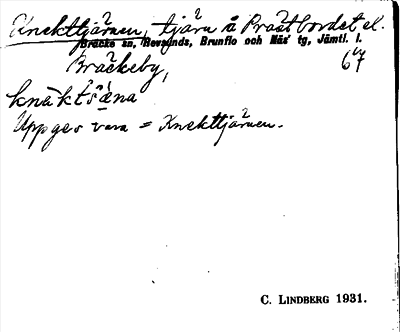 Knekttjärnen, tjärn å Prästbordet el.
Bräcke sn, Revsunds, Brunflo och Näs' tg, Jämtl. l.
Bräckeby, 67
knäktšæ̀na
Uppges vara = Knekttjärnen.
C. LINDBERG 1931.